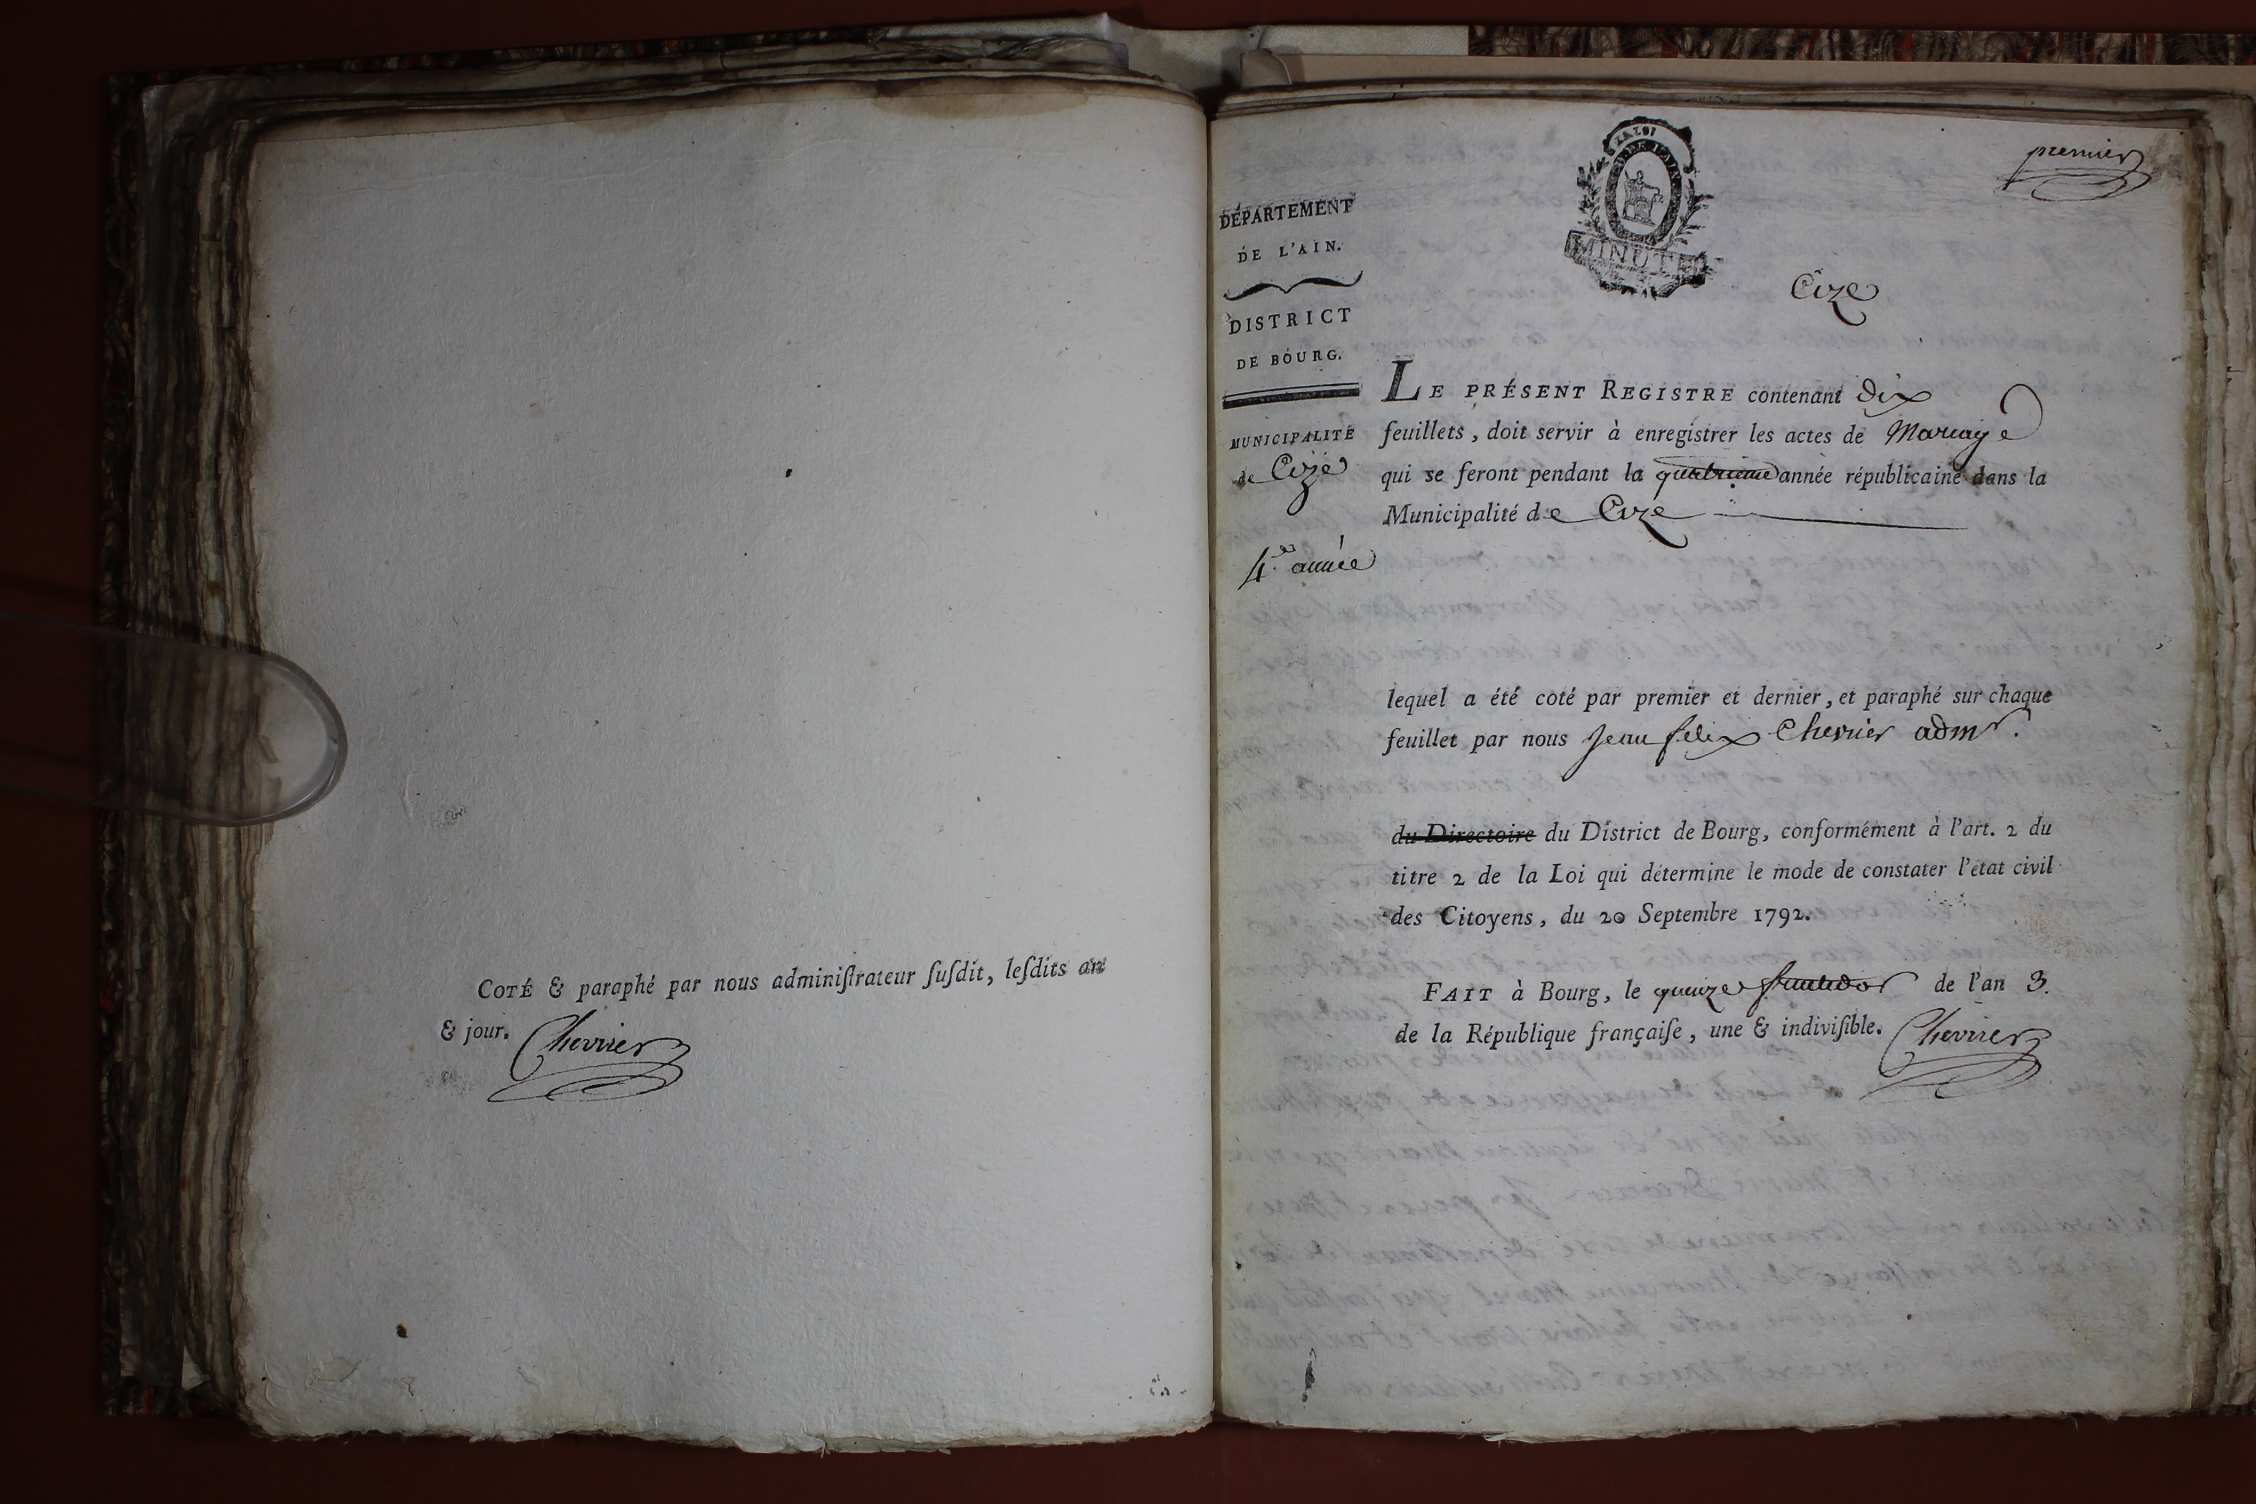 COTÉ & paraphé par nous adminiſtrateur ſuſdit, leſdits an
& jour. Chevrier
premier
LA LOI
DÉP. DE L'AIN
MINUTE
DÉPARTEMENT
DE L'AIN.
DISTRICT
DE BOURG.
MUNICIPALITÉ
de Cize
4.e année
Cize
LE PRÉSENT REGISTRE contenant dix
feuillets, doit servir à enregistrer les actes de Mariage
qui se feront pendant la quatrieme année républicaine dans la
Municipalité de Cize
lequel a été coté par premier et dernier, et paraphé sur chaque
feuillet par nous Jean felix Chevrier admr.
du Directoire du District de Bourg, conformément à l'art. 2 du
titre 2 de la Loi qui détermine le mode de constater l'état civil
des Citoyens, du 20 Septembre 1792.
FAIT à Bourg, le quinze fructidor de l'an 3.
de la République françaiſe, une & indiviſible. Chevrier